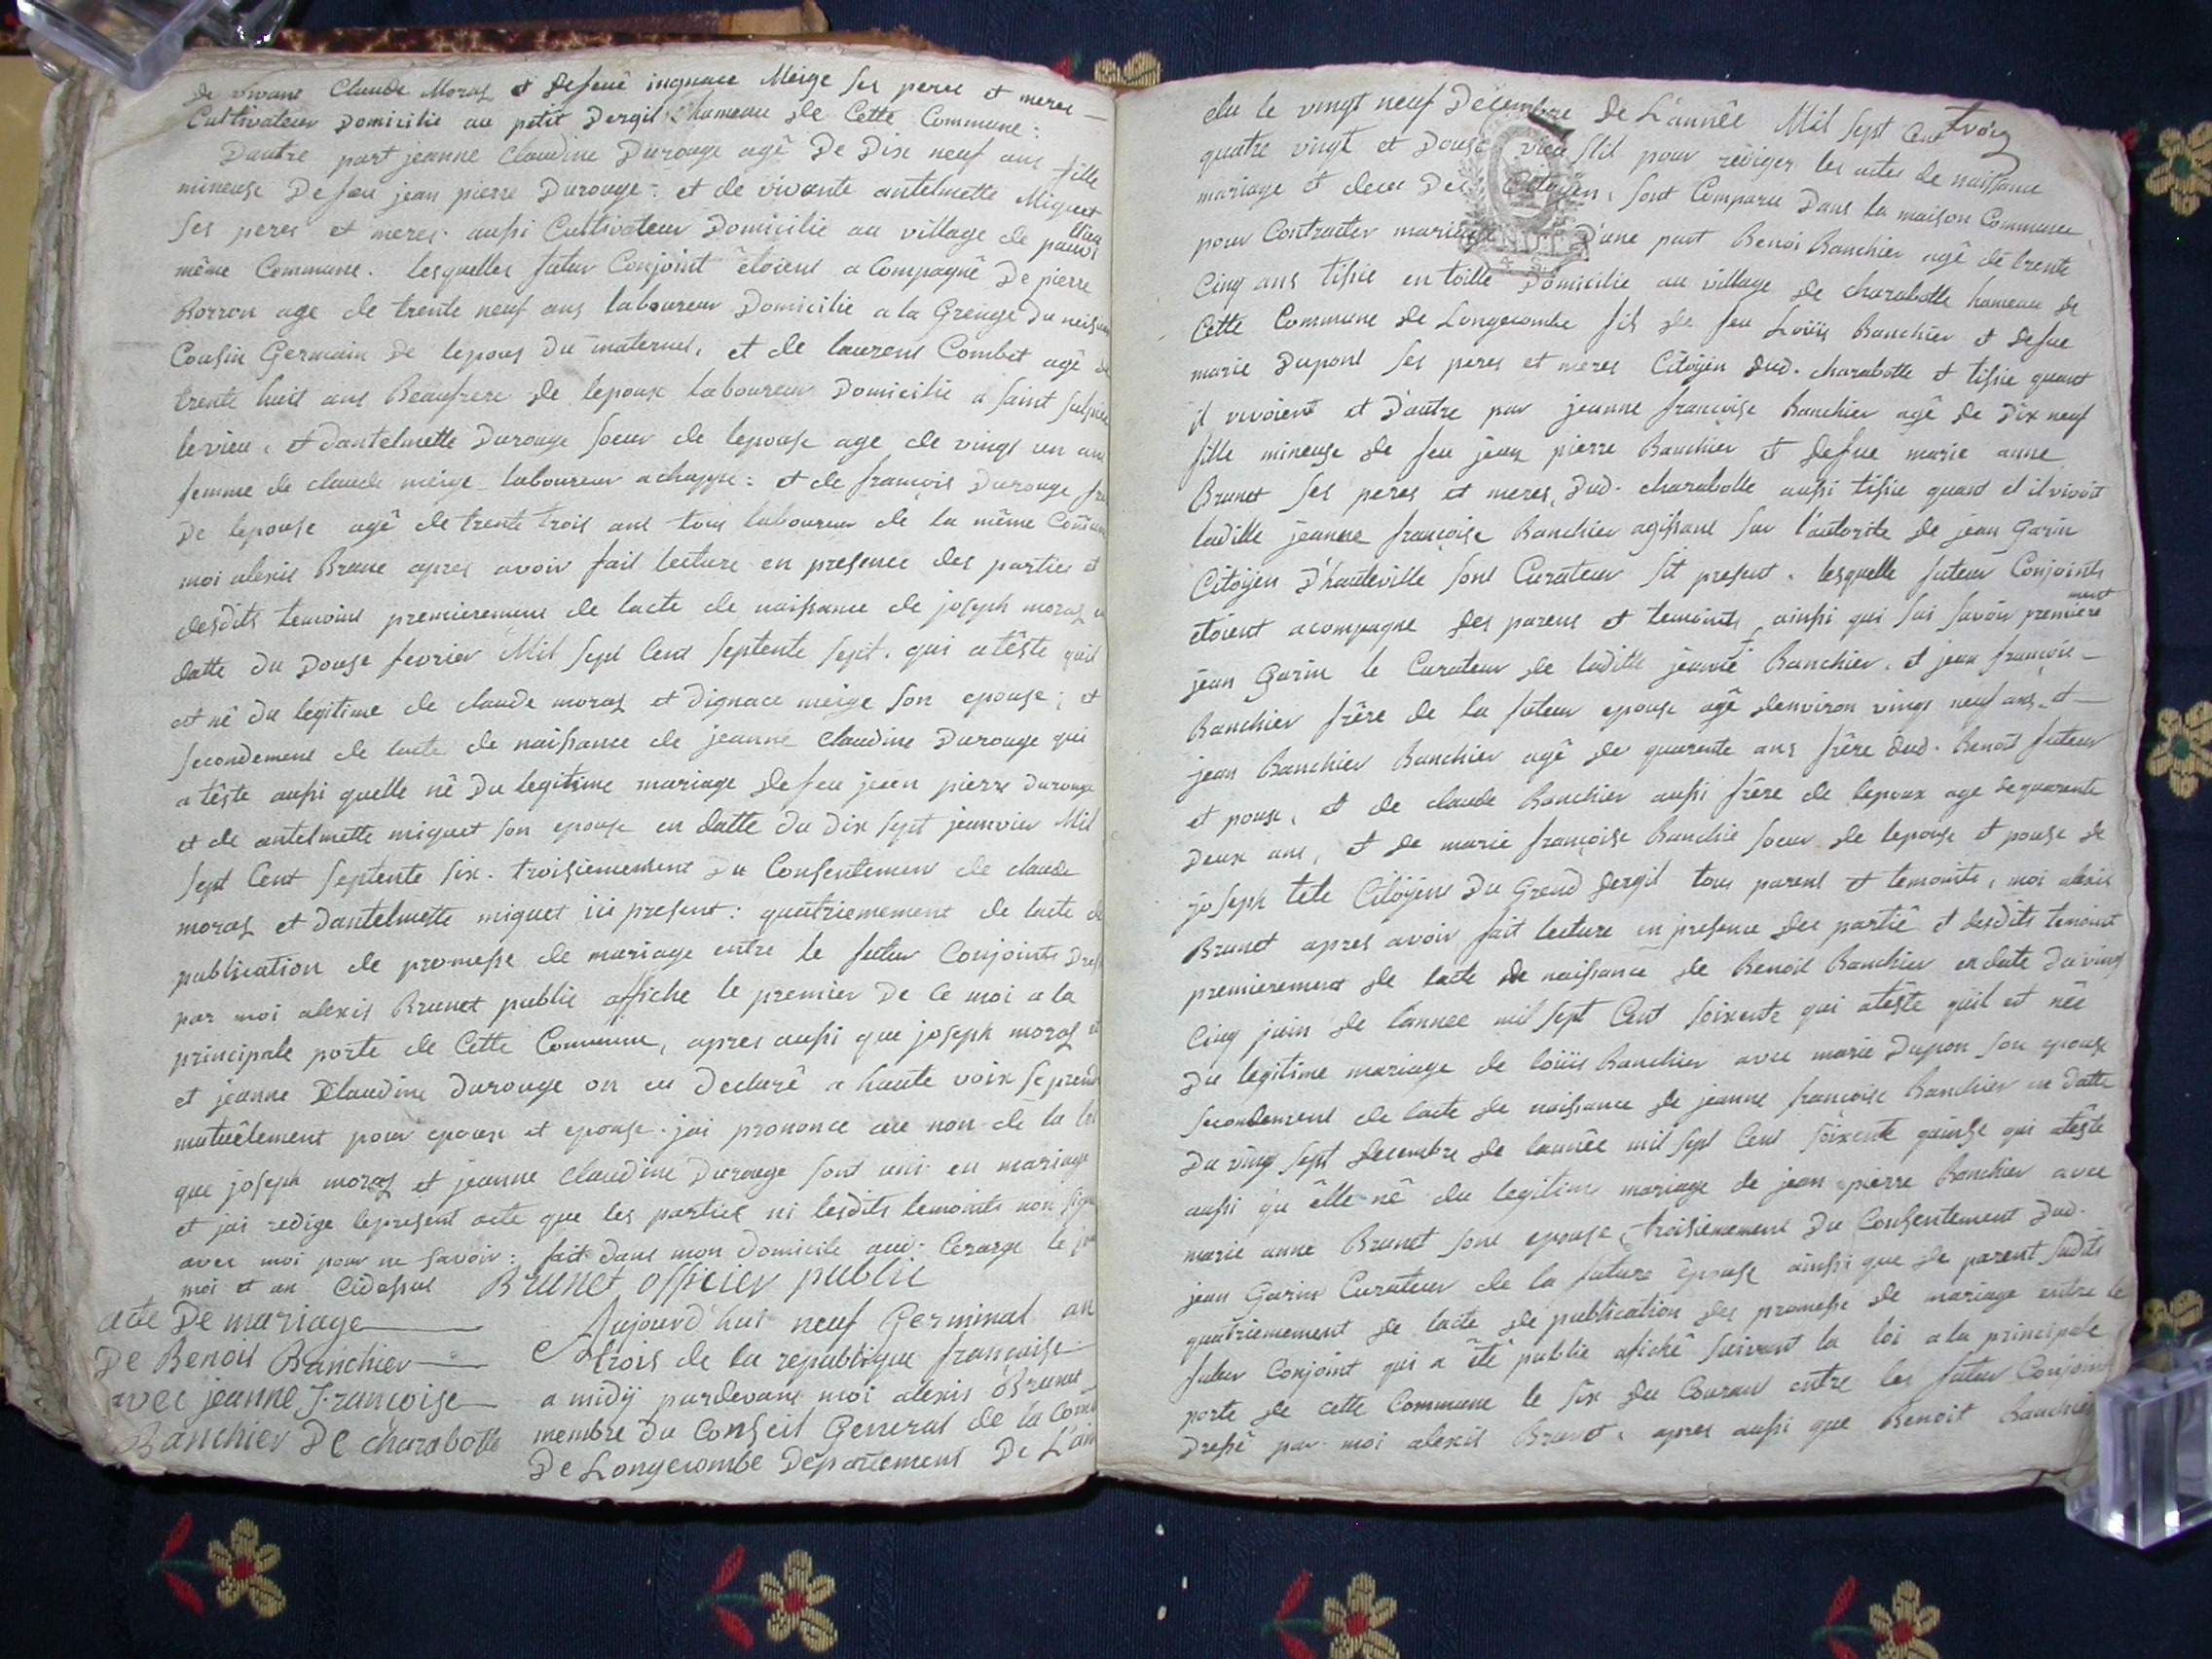 de vivant Claude Moras et defeuë ingnace Meige ses perre et meres
Cultivateur Domicilié au petit Dergit hameau de Cette Commune :
Dautre part jeanne Claudine Durouge agê De Dix neuf ans fille
mineuse De feu jean pierre Durouge : et de vivante antelmette Miguet
ses peres et meres aussi Cultivateur Domicilie au village de
même Commune. lesquelles futur Conjoint êtoient acompagnê De pierre
Borron age de trente neuf ans laboureur Domicilié a la Grenge du
Cousin Germain de lepous du maternel, et de laurent Combet agê de
trente huit ans Beaufrere de lepoux laboureur Domicilié a saint Sulpice
levieu, et dantelmette Durouge soeur de lepouse age de vingt un ans
femme de claude meige laboureur achappe : et de françois Durouge
De lepouse agê de trente trois ans tous laboureur de la même Commune
moi alexis Brunet apres avoir fait lecture en presence des parties et
desdits temoins premierement de lacte de naissance de joseph moras
datte du Douse fevrier Mil sept Cent septente sept. qui atêste quil
et nê du legitime de claude moras et dignace meige son epouse ; et
secondement de lacte de naissance de jeanne claudine Durouge qui
atêste aussi quelle nê Du legitime mariage de feu jean pierre durouge
et de antelmette miguet son epouse en datte du dix sept jeanvier Mil
sept Cent septente six. troisiemement du Consentement de claude
moras et dantelmette miguet ici present : quatriemement de lacte de
publication de promesse de mariage entre le futur Conjoints
par moi alexis Brunet publié affiche le premier De Ce moi a la
principale porte de Cette Commune, apres aussi que joseph moras
et jeanne Claudine Durouge on eu declarê a haute voix se prendre
mutuêlement pour epoux et epouse. jai prononce au non de la loi
que joseph moras et jeanne claudine Durouge sont uni en mariage
et jai redige lepresent acte que les parties ni lesdits temoints non
avec moi pour ne savoir : fait dans mon domicile le
moi et an Cidessus Brunet officier public
acte De mariage
De Benoit Banchier
avec jeanne Françoise
Banchier De charabotte
Aujourd'hui neuf Germinal an
trois de la republique françoise
a midÿ pardevant moi alexis Brunet
membre du Conseil General de la
De Longecombe Département De L'ain
elu le vingt neuf Décembre de L'année Mil sept Cent
quatre vingt et Douse vieu stil pour rêdiger les actes de naissance
mariage et deces Des Citoyen, sont Comparu Dans la maison Commune
pour Contracter mariage D'une part Benoi Banchier agê de trente
Cinq ans tisie en toille Domicilie au village de charabotte hameau de
Cette Commune de Longecombe fils de feu Loüis Banchier et defue
marie Dupont ses peres et meres Citoyen dud. charabotte et tisie quant
il vivoient et D'autre par jeanne françoise Banchier agê de Dix neuf
fille mineuse de feu jean pierre Banchier et defue marie anne
Brunet ses peres et meres, Dud. charabotte aussi tisie quant il vivoit
ladille jeanne françoise Banchier agissant sur l'autorite de jean Garin
Citoyen D'hauteville sont Curateur sit present. lesquelle futeur Conjoints
êtoient acompagne des parens et temoints ainsi qui sui savoir premiere
ment
jean Garin le Curateur de laditte jeanne Banchier, et jean françois
Banchier frère de la futeur epouse agê denviron vingt neuf ans, et
jean Banchier Banchier agê de quarente ans frère dud. Benoit futeur
et pouse, et de claude Banchier aussi frêre de lepoux age dequarente
Deux ans, et de marie françoise Banchié soeur de lepouse et pouse de
joseph tete Citöyens Du Grand dergit tous parent et temoints, moi alexis
Brunet apres avoir fait lecture en presence des partiê et desdits temoint
premierement de lacte de naissance de Benoit Banchier en date du vingt
Cinq juin de lannee mil sept Cent soixente qui atêste quil et née
Du legitime mariage de loüis Banchier avec marie Dupon son epouse
secondement de lacte de naissance de jeanne françoise Banchier en datte
Du vingt sept decembre de lannêe mil sept Cent soixente quinse qui atêste
aussi qu êlle nê du legitime mariage de jean pierre Banchier avec
marie anne Brunet sont epouse, troisiemement Du Consentement Dud.
jean Garin Curateur de la future êpouse ainsi que de parent sudits
quatriemement de lacte de publication des promesse de mariage entre le
futur Conjoint qui a êtê publie afichê suivant la loi a la principale
porte de cette Commune le six du Courant entre les futur Conjoint
Dressê par moi alexis Brunet, apres aussi que Benoit Banchier